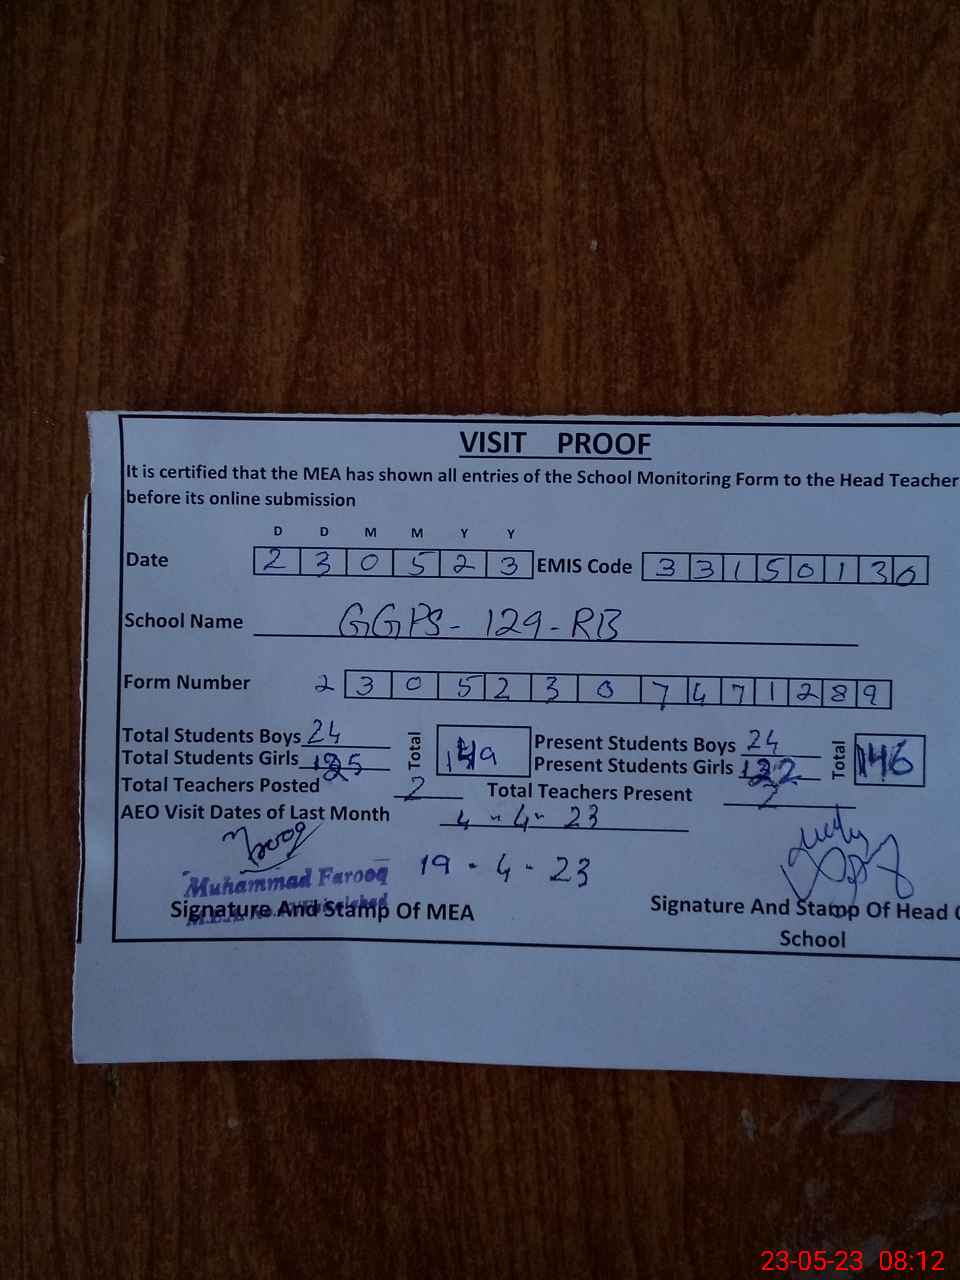 VISIT PROOF
It is certified that the MEA has shown all entries of the School Monitoring Form to the Head Teacher
before its online submission
D D M M Y Y
Date 2 3 0 5 2 3 EMIS Code 3 3 1 5 0 1 3 0
School Name GGPS - 129 - RB
Form Number 2 3 0 5 2 3 0 7 4 7 1 2 8 9
Total Students Boys 24 Total 149 Present Students Boys 24 Total 146
Total Students Girls 125 Present Students Girls 122
Total Teachers Posted 2 Total Teachers Present 2
AEO Visit Dates of Last Month 4 - 4 - 23
19 - 4 - 23
Muhammad Farooq
Signature And Stamp Of MEA Signature And Stamp Of Head
School
23-05-23 08:12